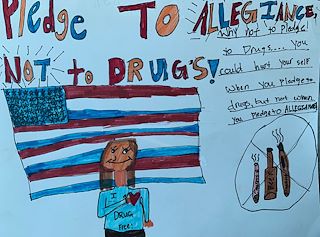 Pledge TO ALLEGIANCE,
NOT to DRUG'S!
Why not to Pledge
to Drugs.... you
could hurt your self
when you Pledge to
drugs, but not when
you Pledge to ALLEGIANCE!
I
DRUG
Free!
BEER